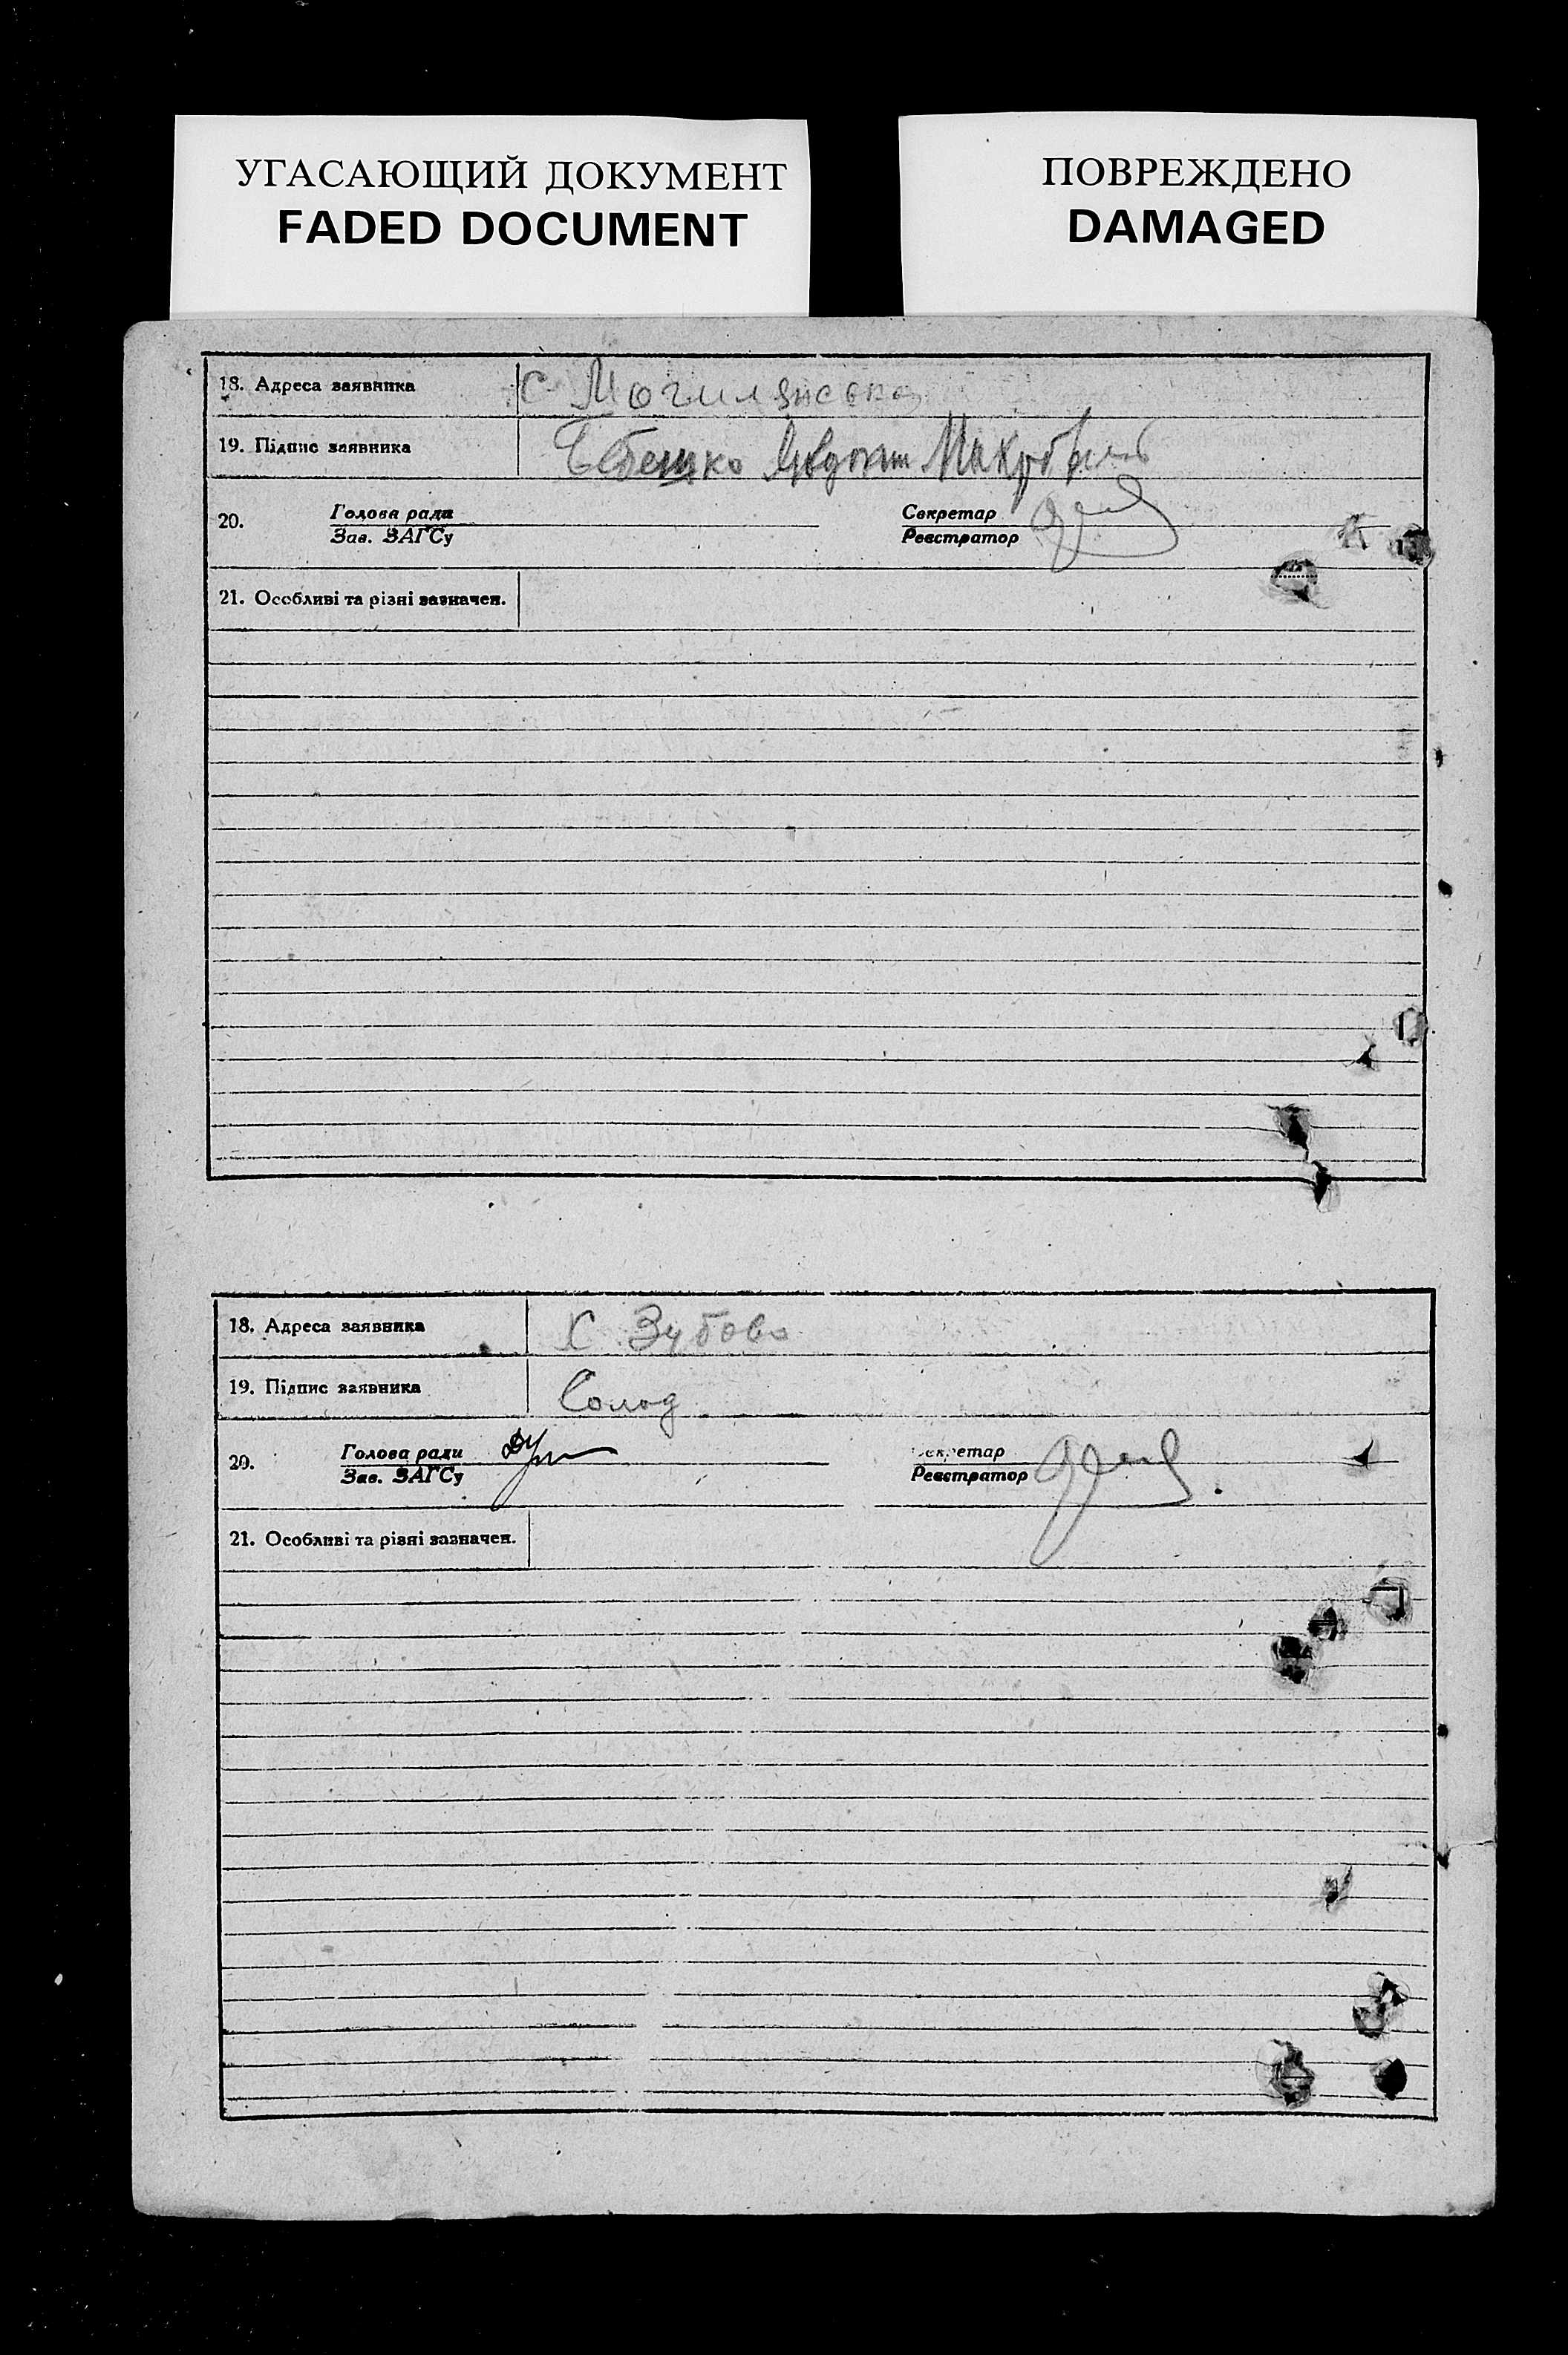 УГАСАЮЩИЙ ДОКУМЕНТ
FADED DOCUMENT
ПОВРЕЖДЕНО
DAMAGED
18. Адреса заявника С Могилянська
19. Підпис заявника
20. Голова ради Секретар
Зав. ЗАГСу Реєстратор
21. Особливі та різні зазначен.
18. Адреса заявника Х Зубово
19. Підпис заявника Солод
20. Голова ради Секретар
Зав. ЗАГСу Реєстратор
21. Особливі та різні зазначен.